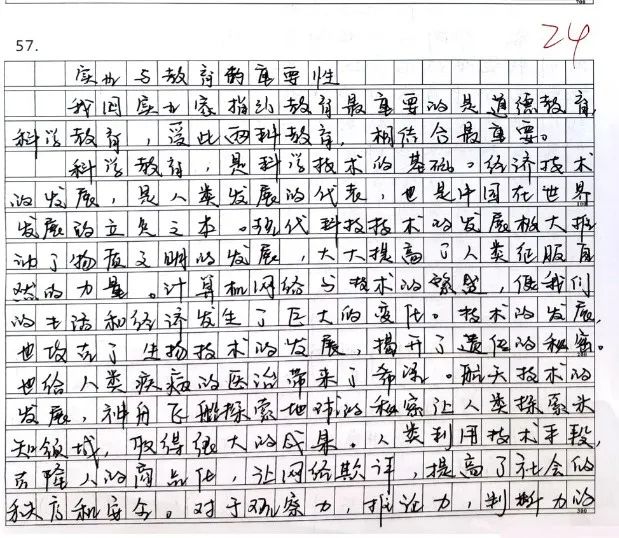 57.
24
实业与教育的重要性
我国实业家指出教育最重要的是道德教育,
科学教育,爱此两种教育,相结合最重要。
科学教育,是科学技术的基础。经济技术
的发展,是人类发展的代表,也是中国在世界
发展的立足之本。现代科技技术的发展极大推
动了物质文明的发展,大大提高了人类征服自
然的力量。计算机网络与技术的繁盛,使我们
的生活和经济发生了巨大的变化。技术的发展,
也攻克了生物技术的发展,揭开了遗传的秘密。
也给人类疾病的医治带来了希望。航天技术的
发展,神舟飞船探索地球的秘密让人类探索未
知领域,取得很大的成果。人类利用技术手段,
克隆人的商品化,让网络欺诈,提高了社会的
秩序和安全。对于观察力,推论力,判断力的